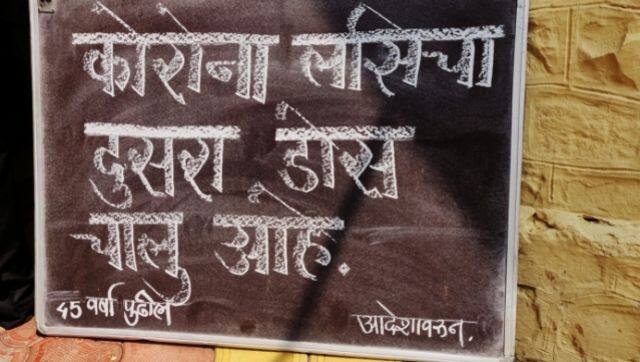 कोरोना लसिचा
दुसरा डोस
चालु आहे.
४५ वर्षा पुढील
आदेशावरून.